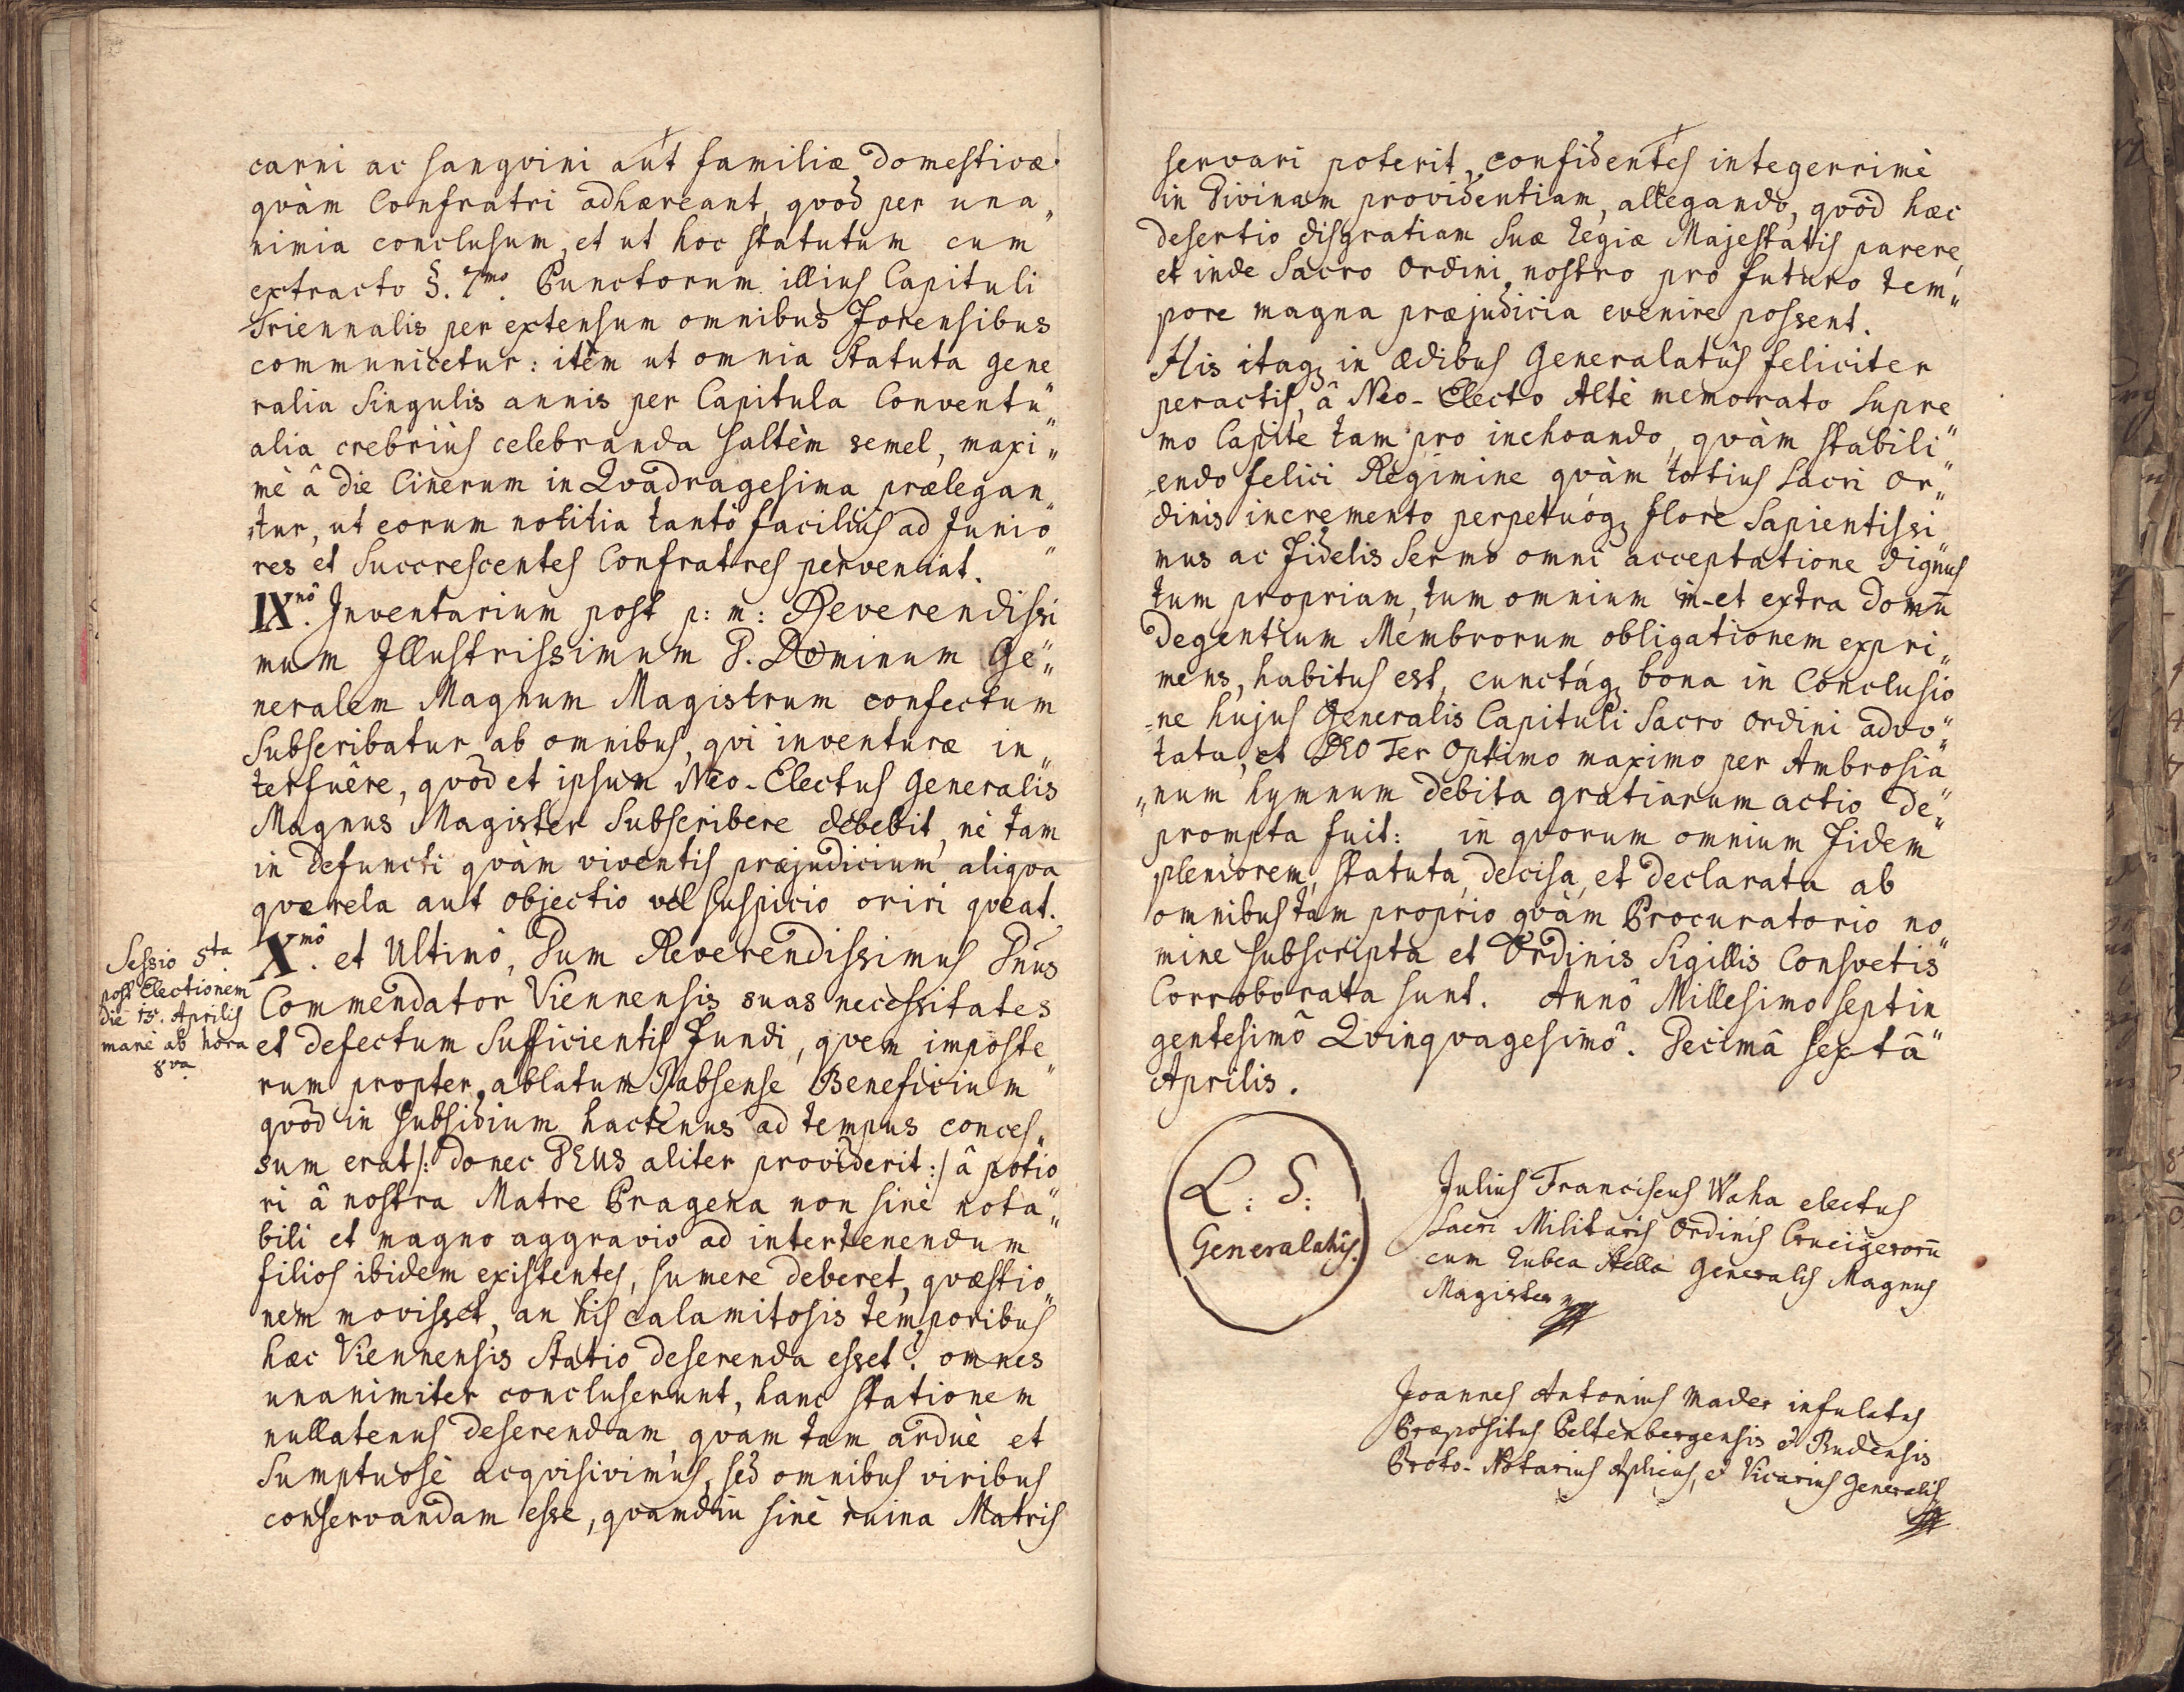 carni ac sangvini aut familiæ domesticæ
qvàm Confratri adhæreant, qvod per una„
nimia conclusum, et ut hoc statutum cum
extracto §. 7mo. Punctorum illius Capituli
Triennalis per extensum omnibus Forensibus
communicetur: itèm ut omnia Statuta gene
ralia Singulis annis per Capitula Conventu„
alia crebriùs celebranda saltèm semel, maxi„
mè â die Cinerum in Qvadragesima prælegan„
tur, ut eorum notitia tantò faciliùs ad Junio„
res et Succrescentes Confratres perveniat.
IXnô. Inventarium post p: m: Reverendissi
mum Illustrissimum P. Dominum Ge„
neralem Magnum Magistrum confectum
Subscribatur ab omnibus, qvi inventuræ in„
terfuêre, qvòd et ipsum Neo-Electus Generalis
Magnus Magister Subscribere debebit, nè tam
in defuncti qvàm viventis præjudicium aliqva
qverela aut objectio vel suspicio oriri qveat.
Sessio 5ta
post Electionem
die 15. Aprilis
mane ab hora
8va
Xmô. et Ultimô, Dum Reverendissimus Dnus
Commendator Viennensis suas necessitates
et defectum Sufficientis Fundi, qvem imposte„
rum propter ablatum Rabsense Beneficium
qvòd in subsidium hactenus ad tempus conces„
sum erat /: donec DEUS aliter providerit :/ â potio
ri â nostra Matre Pragena non sinè nota„
bili et magno aggravio ad intertenendum
filios ibidem existentes, sumere deberet, qvæstio„
nem movisset, an his calamitosis temporibus
hæc Viennensis Statio deserenda esset? omnes
unanimiter concluserunt, hanc stationem
nullatenus deserendam, qvam tam arduè et
Sumptuosè acqvisivimus, sed omnibus viribus
conservandam esse, qvamdiu sinè ruina Matris
servari poterit, confidentes integerrimè
in Divinam providentiam, allegando, qvòd hæc
desertio disgratiam Suæ Regiæ Majestatis parere,
et inde Sacro Ordini nostro pro futuro tem„
pore magna præjudicia evenire possent.
His itaq; in Ædibus Generalatûs feliciter
peractis, â Neo-Electo Altè memorato Supre
mo Capite tam pro inchoando, qvàm stabili„
endo felici Regimine qvàm totius Sacri Or„
dinis incremento perpetuóq; flore Sapientissi„
mus ac Fidelis Sermo omni acceptatione dignus
tum propriam, tum omnium in-et extra domū
Degentium Membrorum obligationem expri„
mens, habitus est, cunctáq; bona in Conclusio„
ne hujus Generalis Capituli Sacro Ordini advo„
tata, et DEO Ter Optimo maximo per Ambrosia„
„num hymnum debita gratiarum actio de„
prompta fuit: in qvorum omnium Fidem
pleniorem, statuta, decisa, et declarata ab
omnibus tam proprio qvàm Procuratorio no„
mine subscripta et Ordinis Sigillis Consvetis
Corroborata sunt. Annô Millesimo septin„
gentesimô Qvinqvagesimô. Decimâ sextâ
Aprilis.
L: S:
Generalatûs.
Julius Franciscus Waha electus
Sacri Militaris Ordinis Crucigerorū
cum Rubea Stella Generalis Magnus
Magister
Joannes Antonius Mader infulatus
Præpositus Peltenbergensis et Rudensis
Proto-Notarius Aplicus, et Vicarius Generalis